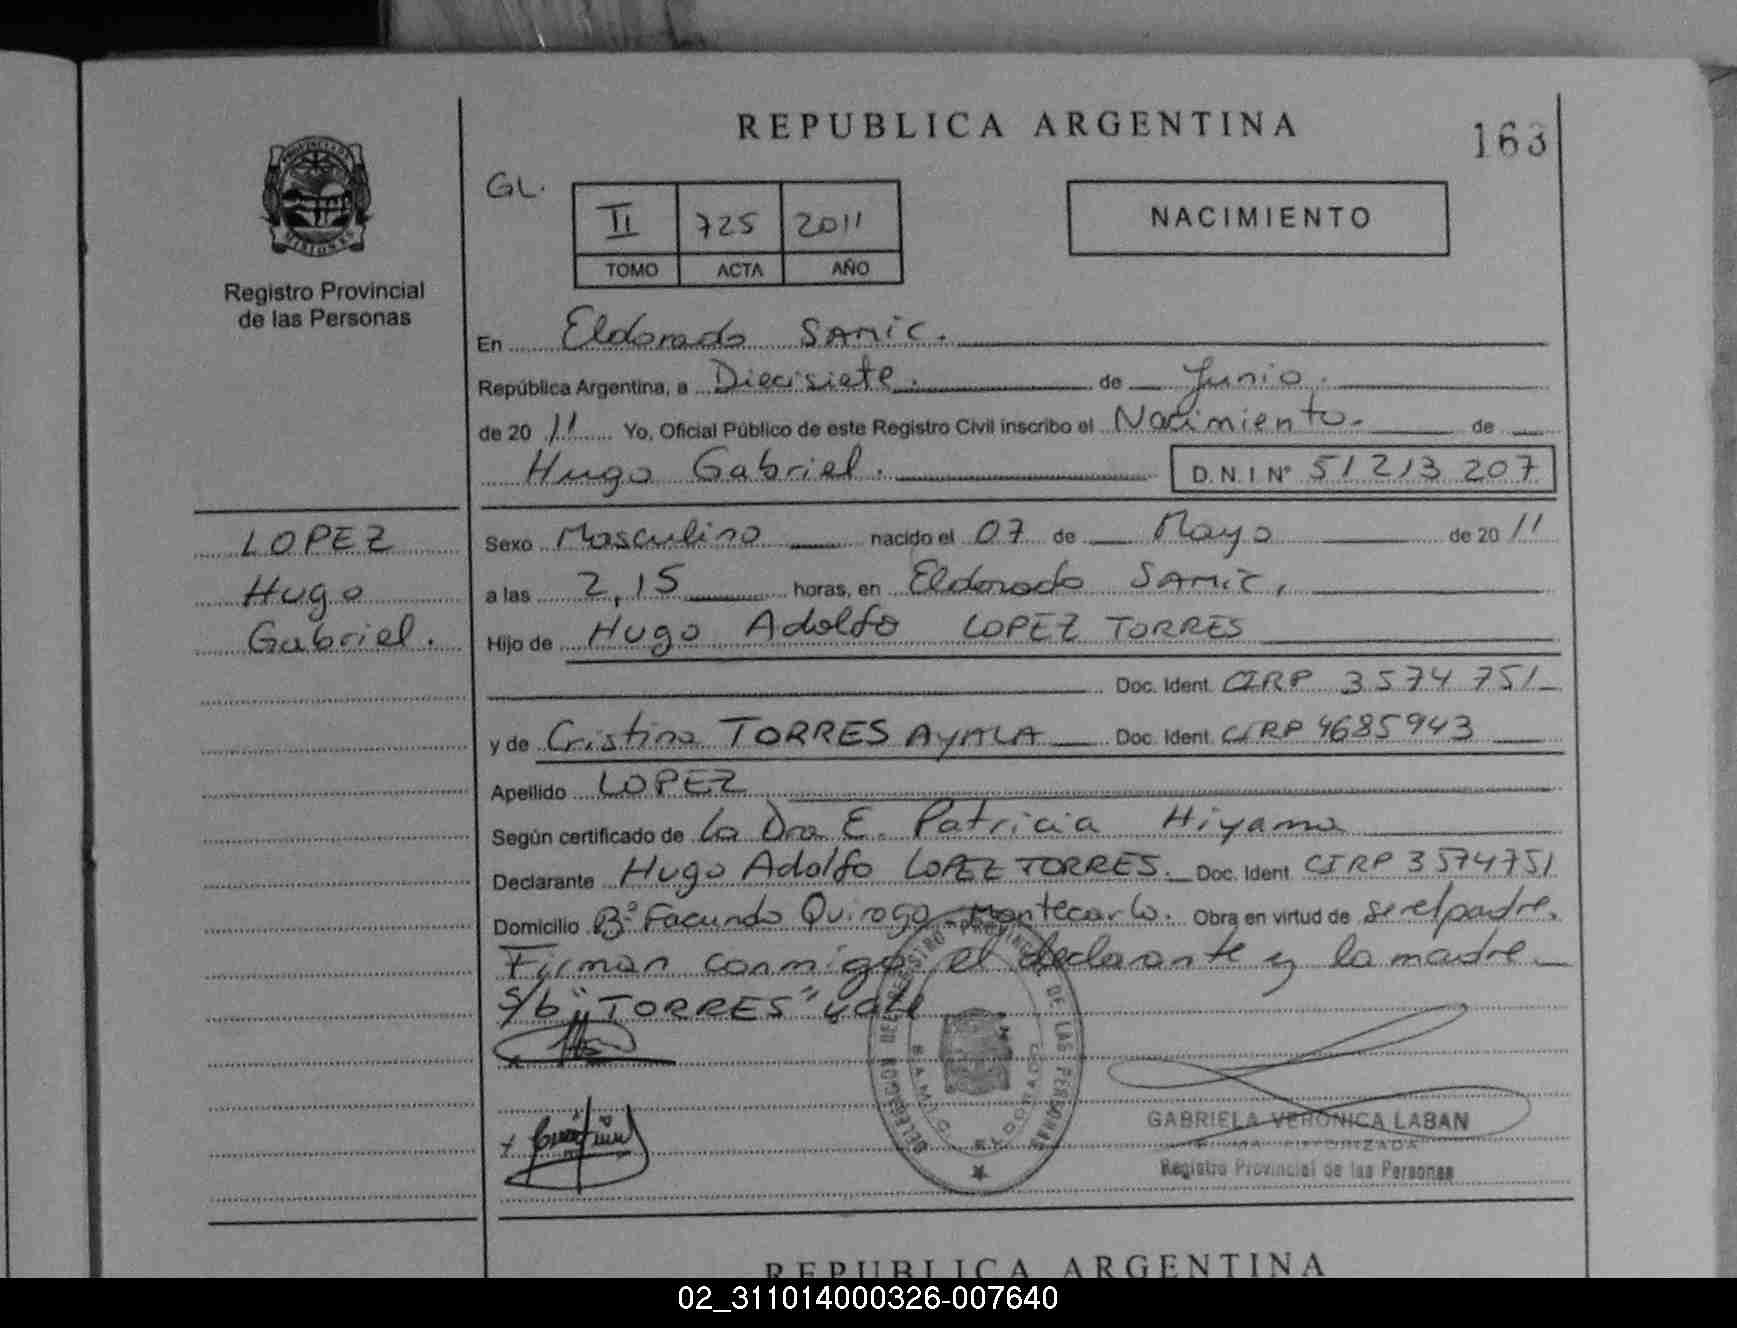 REPUBLICA ARGENTINA
163
PROVINCIA DE
MISIONES
Registro Provincial
de las Personas
GL.
II 725 2011
TOMO ACTA AÑO
NACIMIENTO
En Eldorado SAMIC.
República Argentina, a Diecisiete. de Junio.
de 20 11 Yo, Oficial Público de este Registro Civil inscribo el Nacimiento. de
Hugo Gabriel. D.N.I Nº 51213207
LOPEZ
Hugo
Gabriel.
Sexo Masculino nacido el 07 de Mayo de 20 11
a las 2,15 horas, en Eldorado SAMIC,
Hijo de Hugo Adolfo LOPEZ TORRES
Doc. Ident. CIRP 3574751
y de Cristina TORRES AYALA Doc. Ident. CIRP 4685943
Apellido LOPEZ
Según certificado de La Dra E. Patricia Hiyama
Declarante Hugo Adolfo LOPEZ TORRES. Doc. Ident. CIRP 3574751
Domicilio Bº Facundo Quiroga Montecarlo. Obra en virtud de ser el padre.
Firman conmigo el declarante y la madre
S/b "TORRES" vale
DE LAS PERSONAS
SAMIC ELDORADO
GABRIELA VERONICA LABAN
FIRMA AUTORIZADA
Registro Provincial de las Personas
REPUBLICA ARGENTINA
02_311014000326-007640